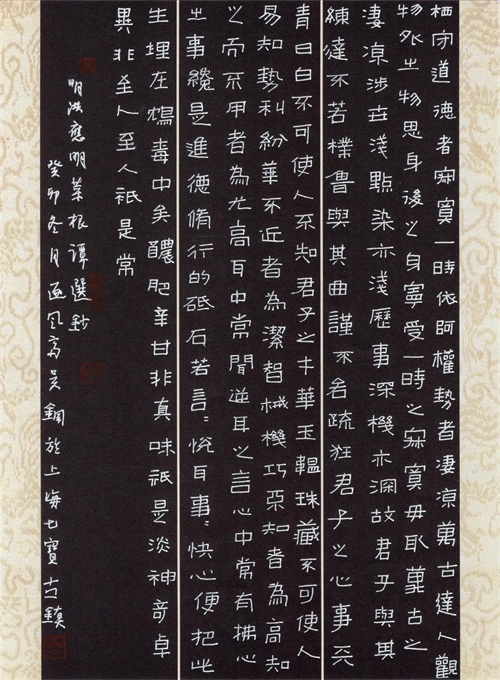 栖守道德者寂寞一時依阿權勢者淒涼萬古達人觀
物外之物思身後之身寧受一時之寂寞毋取萬古之
淒涼涉世淺點染亦淺歷事深機亦深故君子與其
練達不若樸魯與其曲謹不若疏狂君子之心事天
青日白不可使人不知君子之才華玉韞珠藏不可使人
易知勢利紛華不近者為潔智械機巧不知者為高知
之而不用者為尤高耳中常聞逆耳之言心中常有拂心
之事纔是進德脩行的砥石若言〻悅耳事〻快心便把此
生埋在鴆毒中矣醲肥辛甘非真味祇是淡神奇卓
異非至人至人祇是常
明洪應明菜根譚選鈔
癸卯冬月逐風齋吳鋼於上海七寶古鎮